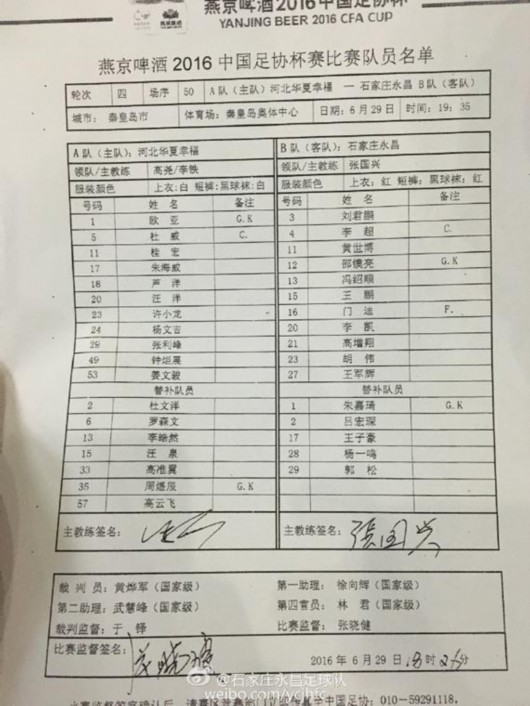 燕京啤酒2016中国足协杯
YANJING BEER 2016 CFA CUP
燕京啤酒 2016 中国足协杯赛比赛队员名单
轮次 四 场序 50 A队（主队）河北华夏幸福 — 石家庄永昌 B队（客队）
城市： 秦皇岛市 体育场：秦皇岛奥体中心 日期：6月29日 时间：19：35
A队（主队）：河北华夏幸福 B队（客队）：石家庄永昌
领队/主教练 高尧/李铁 领队/主教练： 张国兴
服装颜色 上衣：白 短裤：黑球袜：白 服装颜色 上衣：红 短裤：黑球袜：红
号码 姓名 备注 号码 姓名 备注
1 欧亚 G.K 3 刘君鹏
5 杜威 C. 4 李超 C.
11 桂宏 11 黄世博
17 朱海威 12 邵镤亮 G.K
18 芦洋 13 冯绍顺
20 汪洋 15 王鹏
23 许小龙 16 门远 F.
24 杨文吉 20 李凯
29 张利峰 21 高增翔
49 钟炬展 23 胡伟
53 姜文骏 27 王军辉
替补队员 替补队员
2 杜文洋 1 朱嘉琦 G.K
6 罗森文 2 吕宏琛
13 李皓然 17 王子豪
15 汪泉 28 杨一鸣
33 高准翼 29 郭松
35 周煜辰 G.K
57 高云飞
主教练签名： 主教练签名： 張国兴
裁判员：黄烨军（国家级） 第一助理： 徐向辉（国家级）
第二助理：武慧峰（国家级） 第四官员： 林君（国家级）
裁判监督：于铎 比赛监督：张晓健
比赛监督签名： 2016年6月29日
@石家庄永昌足球队
weibo.com/ycjhfc
010-59291118.